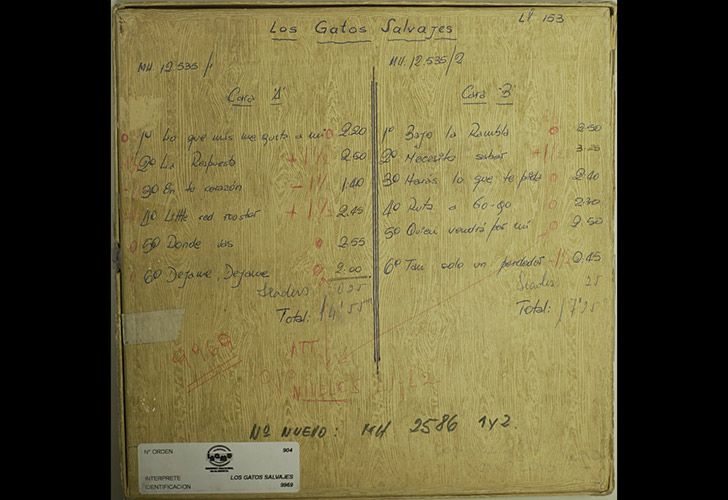 Los Gatos Salvajes
LP 153
MH. 12.535/1
MH. 12.535/2
Cara "A"
1º Lo que más me gusta a mi 0 2.20
2º La Respuesta +1½ 2.60
3º En tu corazón -1½ 1.40
4º Little red rooster +1½ 2.45
5º Donde vas 0 2.55
6º Dejame, Dejame 0 2.00
Leaders
Total: 14'55"
Cara "B"
1º Bajo la Rambla 0 2.50
2º Necesito saber +1½ 3.25
3º Harás lo que te pida 0 2.40
4º Ruta a Go-Go 0 2.30
5º Quien vendrá por mi 0 2.50
6º Tan solo un perdedor -1½
25
Total: 17'25
9969
ATT
NIVELES
Nº NUEVO: MH 2586 1 y 2.
Nº ORDEN 904
INTERPRETE LOS GATOS SALVAJES
IDENTIFICACION 9969